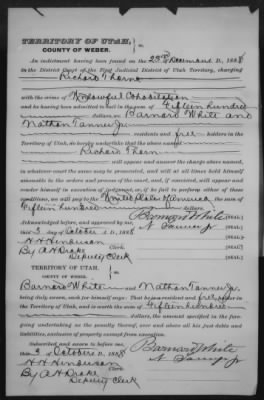 TERRITORY OF UTAH,
COUNTY OF WEBER. } ss.
An indictment having been found on the 23rd December A. D., 1885
in the District Court of the First Judicial District of Utah Territory, charging
Richard Thorne
with the crime of Unlawful Cohabitation
and he having been admitted to bail in the sum of Fifteen hundred
dollars, we Barnard White and
Nathan Tanner Jr
residents and free holders in the
Territory of Utah, do hereby undertake that the above named
Richard Thorn
will appear and answer the charge above named,
in whatever court the same may be prosecuted, and will at all times hold himself
amenable to the orders and process of the court, and, if convicted, will appear and
render himself in execution of judgment, or, if he fail to perform either of these
conditions, we will pay to the United States of America, the sum of
Fifteen hundred dollars.
Acknowledged before, and approved by me, Barnard White (SEAL.)
this 3 day of October A. D. 188 N Tanner Jr (SEAL.)
H H Henderson (SEAL.)
Clerk. (SEAL.)
By A H Drake
Deputy Clerk
TERRITORY OF UTAH,
COUNTY OF WEBER. } ss.
Barnard White and Nathan Tanner Jr.
being duly sworn, each for himself says: That he is a resident and free holder in
the Territory of Utah, and is worth the sum of Fifteen hundred
dollars, the amount specified in the foregoing
undertaking as the penalty thereof, over and above all his just debts and
liabilities, exclusive of property exempt from execution.
Subscribed and sworn to before me, Barnard White
this 3 of October A. D. 188 N Tanner Jr
H H Henderson
Clerk.
By A H Drake
Deputy Clerk